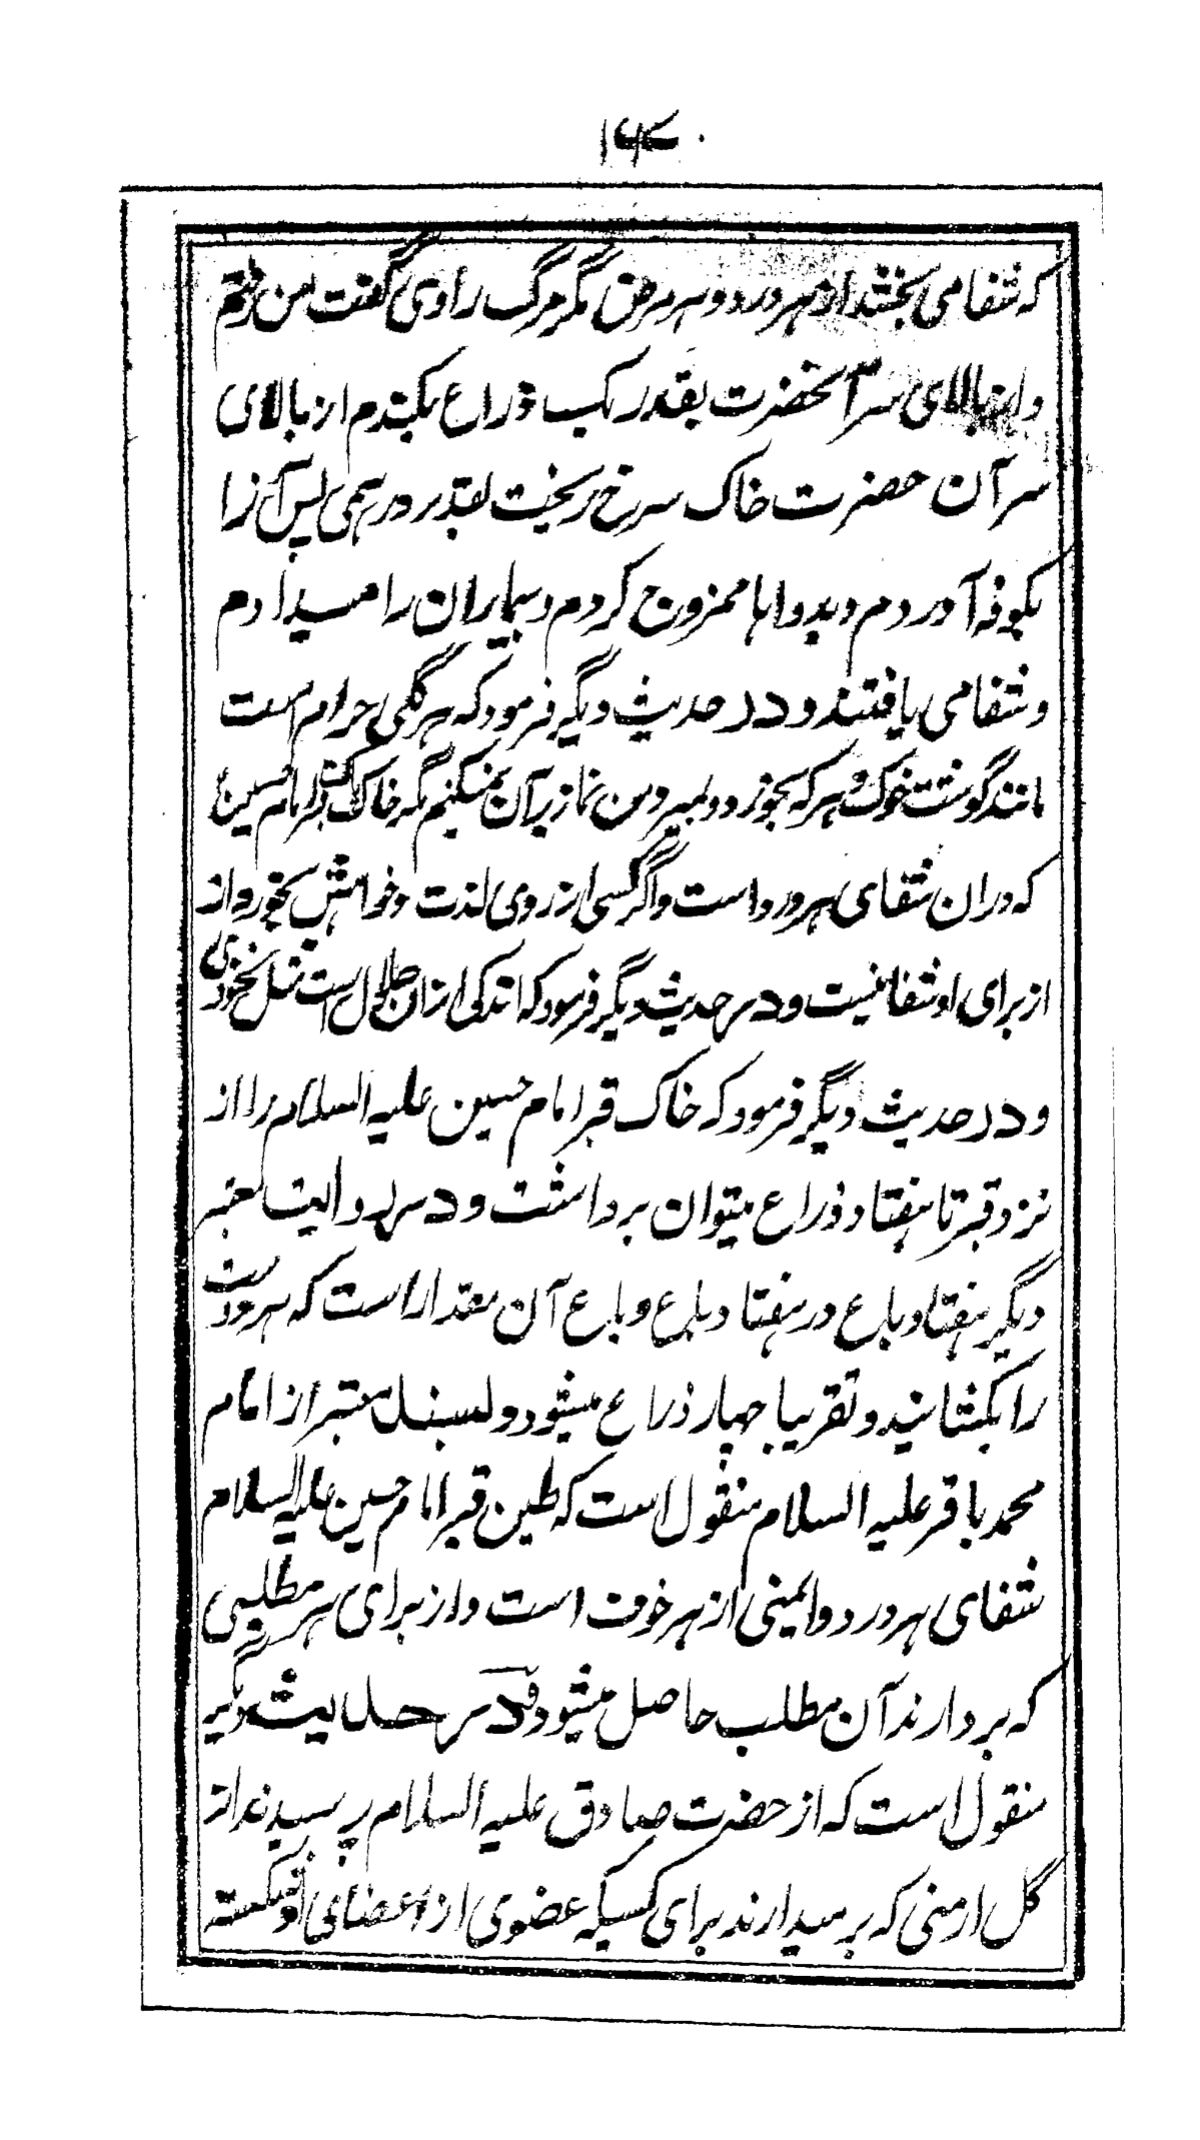 که شفا می بخشد از هر درد و هر مرض مگر مرگ راوی گفت من رفتم
و از بالای سر آنحضرت بقدر یک ذراع بکندم از بالای
سر آن حضرت خاک سرخ ریخت بقدر درهمی پس آنرا
بکوفه آوردم و بدواها ممزوج کردم و بیماران را میدادم
و شفا می یافتند و در حدیث دیگر فرمود که هر گلی حرام است
مانند گوشت خوک و هر که بخورد و بمیرد من نماز بر آن نمیکنم مگر خاک قبر امام حسین ع
که دران شفای هر درد است و اگر کسی از روی لذت و خواهش بخورد از
از برای او شفا نیست و در حدیث دیگر فرمود که اندکی ازان حلال است مثل نخودی
و در حدیث دیگر فرمود که خاک قبر امام حسین علیه السلام را از
نزد قبر تا هفتاد ذراع میتوان برداشت و در روایت معتبر
دیگر هفتاد باع در هفتاد باع و باع آن مقدار است که هر دو دست
را بکشایند و تقریبا چهار ذراع میشود و بسند معتبر از امام
محمد باقر علیه السلام منقول است که طین قبر امام حسین علیه السلام
شفای هر درد و ایمنی از هر خوف است و از برای هر مطلبی
که بردارند آن مطلب حاصل میشود و در حدیث دیگر
منقول است که از حضرت صادق علیه السلام پرسیدند از
گل ارمنی که بر میدارند برای کسیکه عضوی از اعضای او شکسته